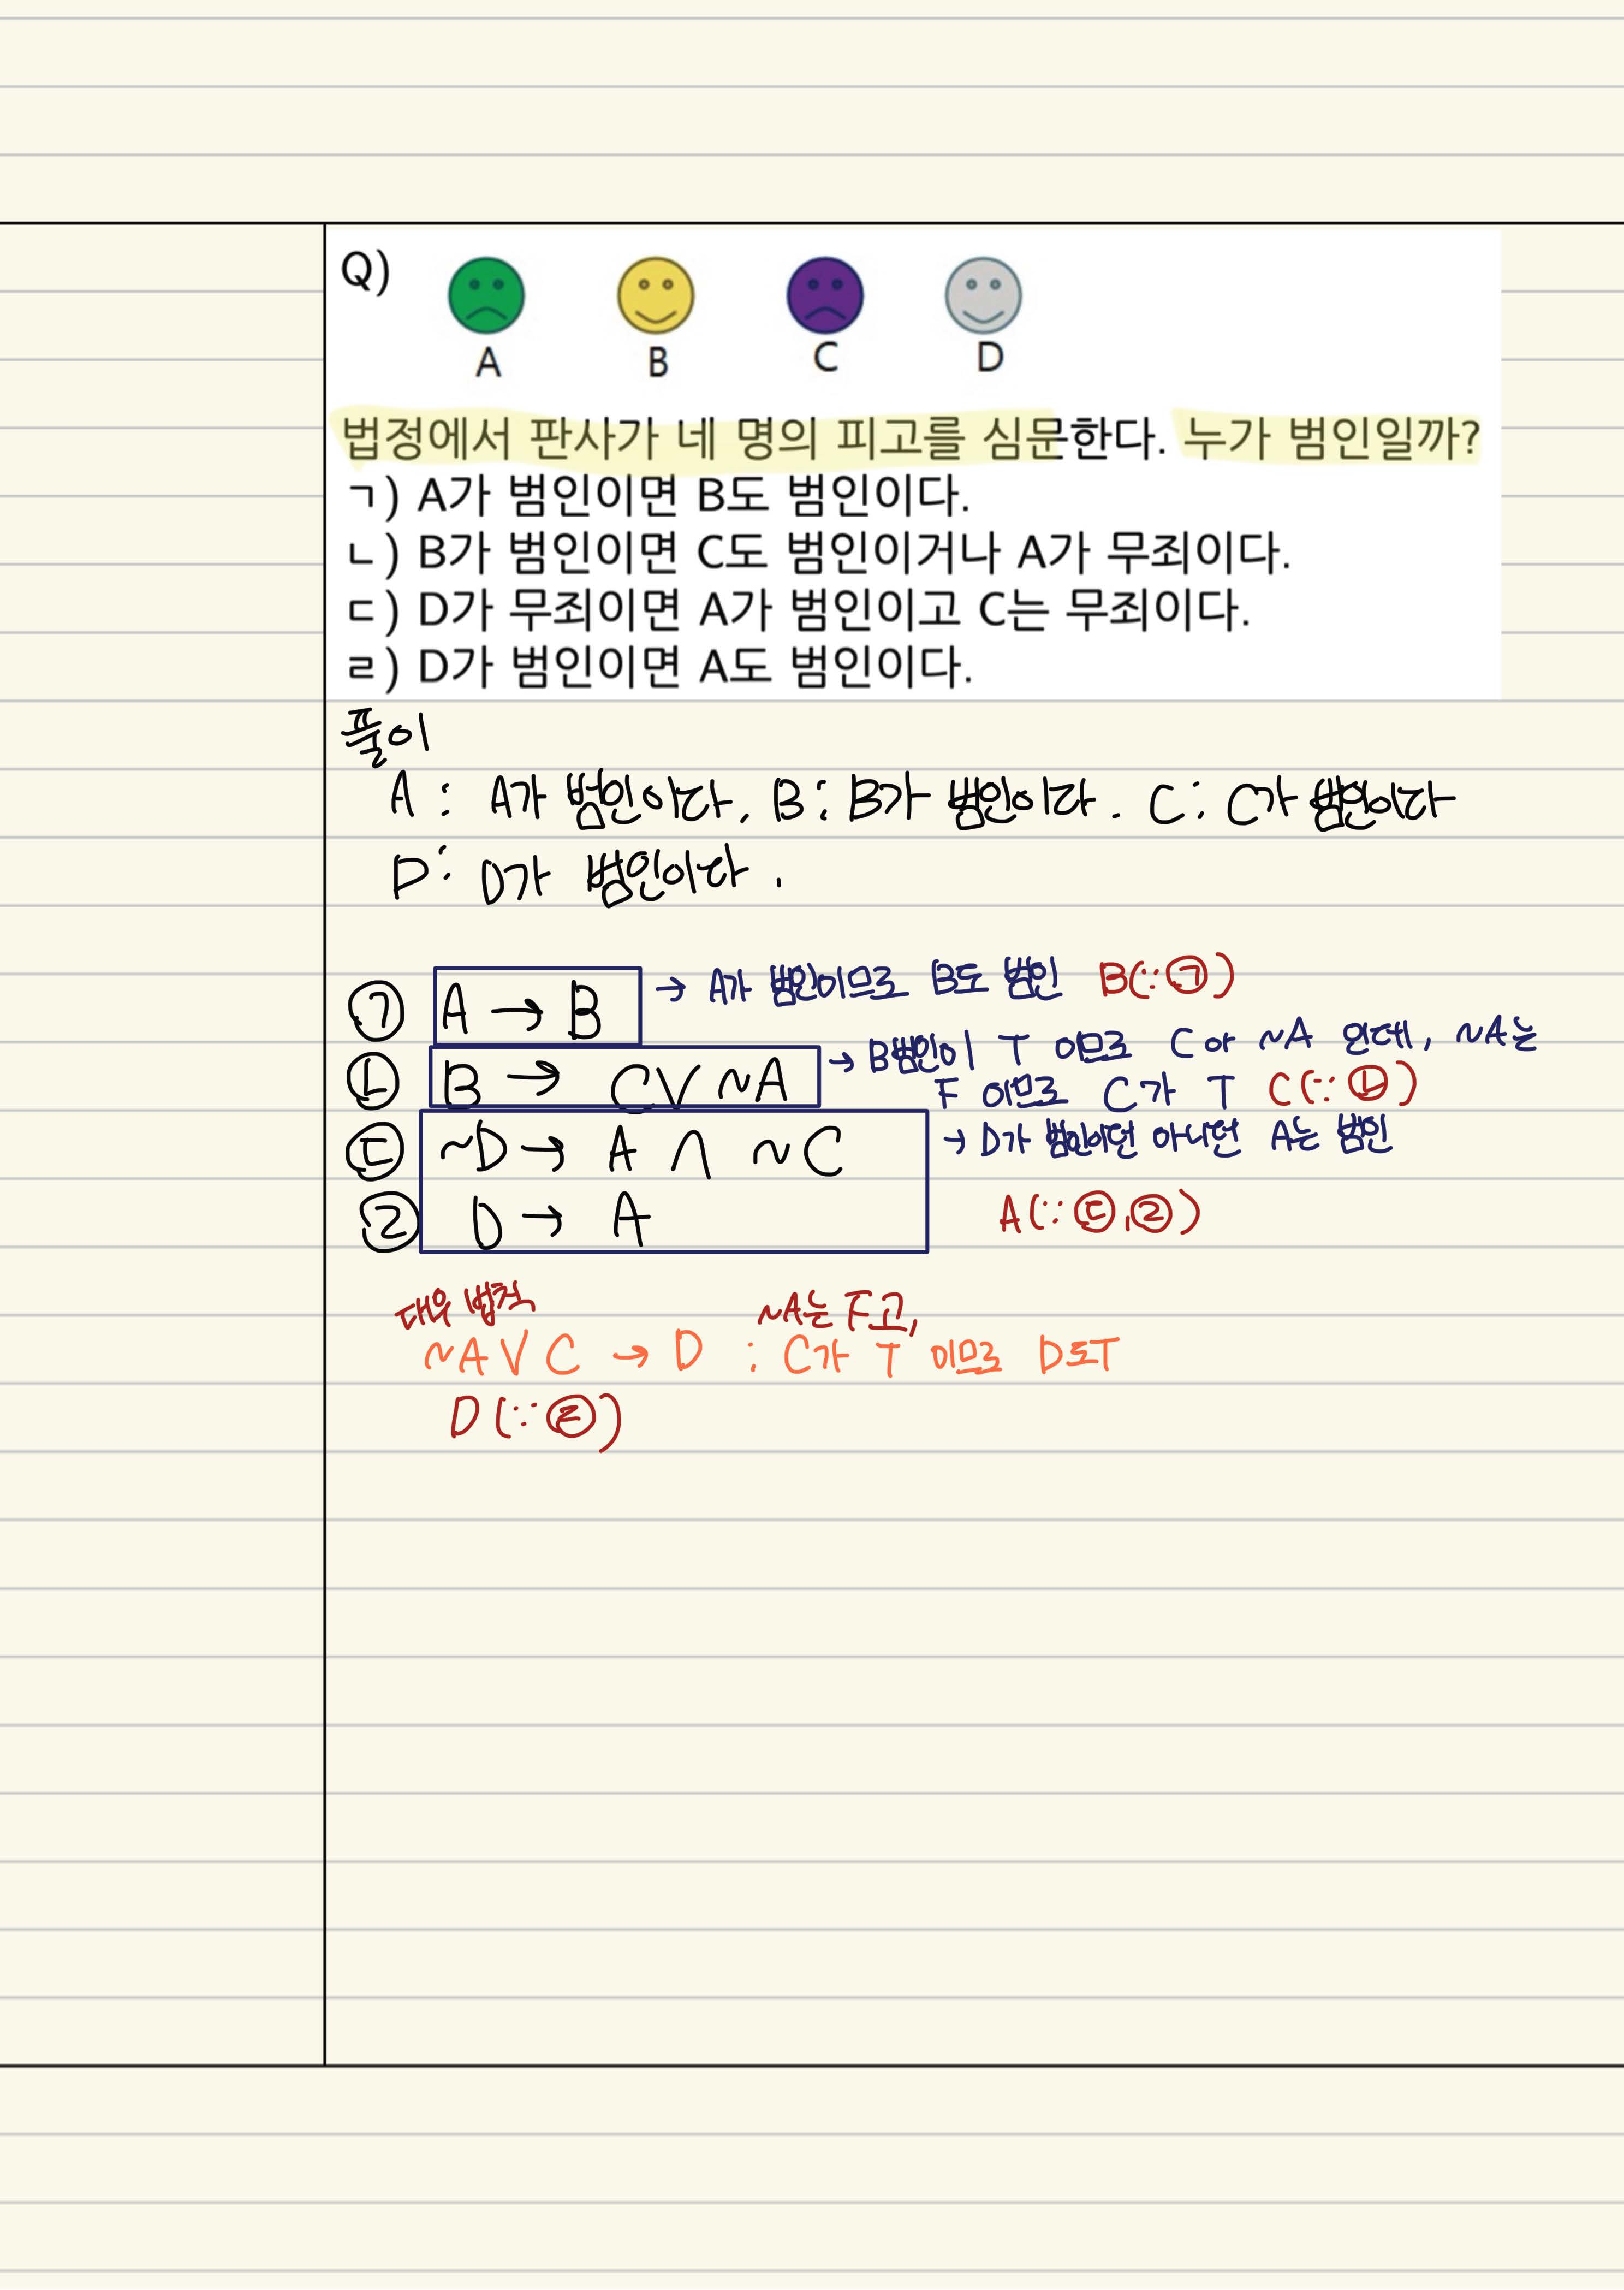 Q)
A B C D
법정에서 판사가 네 명의 피고를 심문한다. 누가 범인일까?
ㄱ) A가 범인이면 B도 범인이다.
ㄴ) B가 범인이면 C도 범인이거나 A가 무죄이다.
ㄷ) D가 무죄이면 A가 범인이고 C는 무죄이다.
ㄹ) D가 범인이면 A도 범인이다.
풀이
A : A가 범인이다. B : B가 범인이다. C : C가 범인이다
D : D가 범인이다.
㉠ A → B → A가 범인이므로 B도 범인 B(∵㉠)
㉡ B → C ∨ ~A → B범인이 T 이므로 C or ~A 인데, ~A는
F 이므로 C가 T C(∵㉡)
㉢ ~D → A ∧ ~C → D가 범인이던 아니던 A는 범인
㉣ D → A A(∵㉢,㉣)
대우 법칙 ~A는 F고,
~A ∨ C → D : C가 T 이므로 D도T
D(∵㉢)